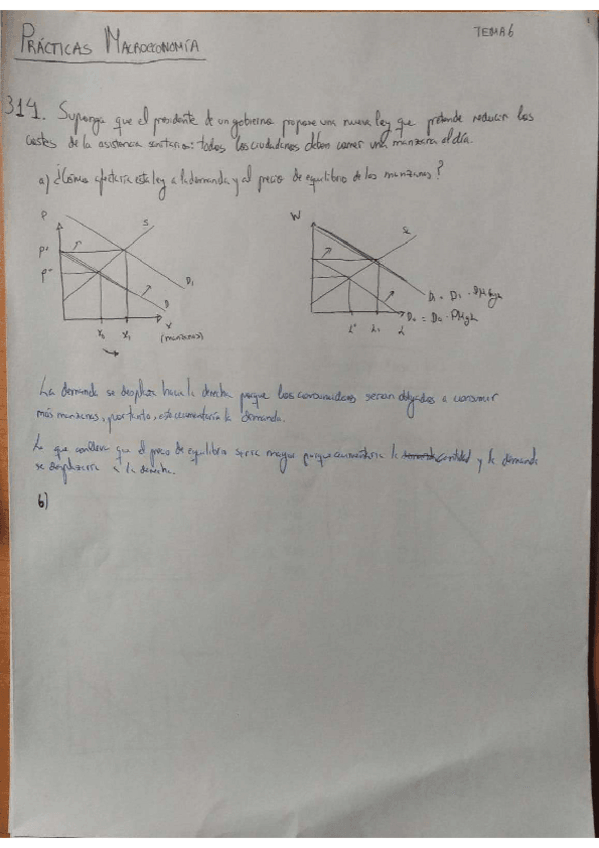 PRÁCTICAS MACROECONOMÍA
TEMA 6
314. Suponga que el presidente de un gobierno propone una nueva ley que pretende reducir los
costes de la asistencia sanitaria: todos los ciudadanos deben comer una manzana al día.
a) ¿Cómo afectaría esta ley a la demanda y al precio de equilibrio de las manzanas?
P
S
P'
P*
D1
D
X0 X1 X
(manzanas)
W
L* L1 L
La demanda se desplaza hacia la derecha porque los consumidores serían obligados a consumir
más manzanas, por tanto, esto aumentaría la demanda.
Lo que conlleva que el precio de equilibrio sería mayor porque aumentaría la cantidad y la demanda
se desplazaría a la derecha.
b)